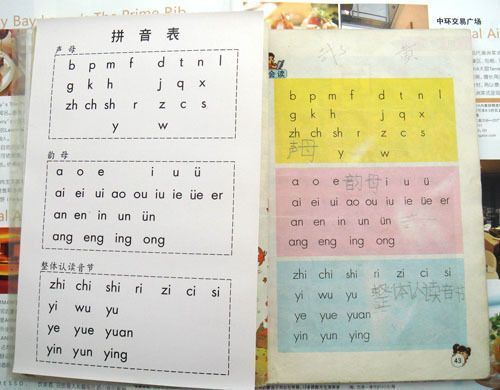 Bay Lounge's The Prime Rib
中环交易广场
拼 音 表
声 母
b p m f d t n l
g k h j q x
zh ch sh r z c s
y w
韵 母
a o e i u ü
ai ei ui ao ou iu ie üe er
an en in un ün
ang eng ing ong
整体认读音节
zhi chi shi ri zi ci si
yi wu yu
ye yue yuan
yin yun ying
会读
b p m f d t n l
g k h j q x
zh ch sh r z c s
声母 y w
a o e 韵母 i u ü
ai ei ui ao ou iu ie üe er
an en in un ün
ang eng ing ong
zhi chi shi ri zi ci si
yi wu yu 整体认读音节
ye yue yuan
yin yun ying
43